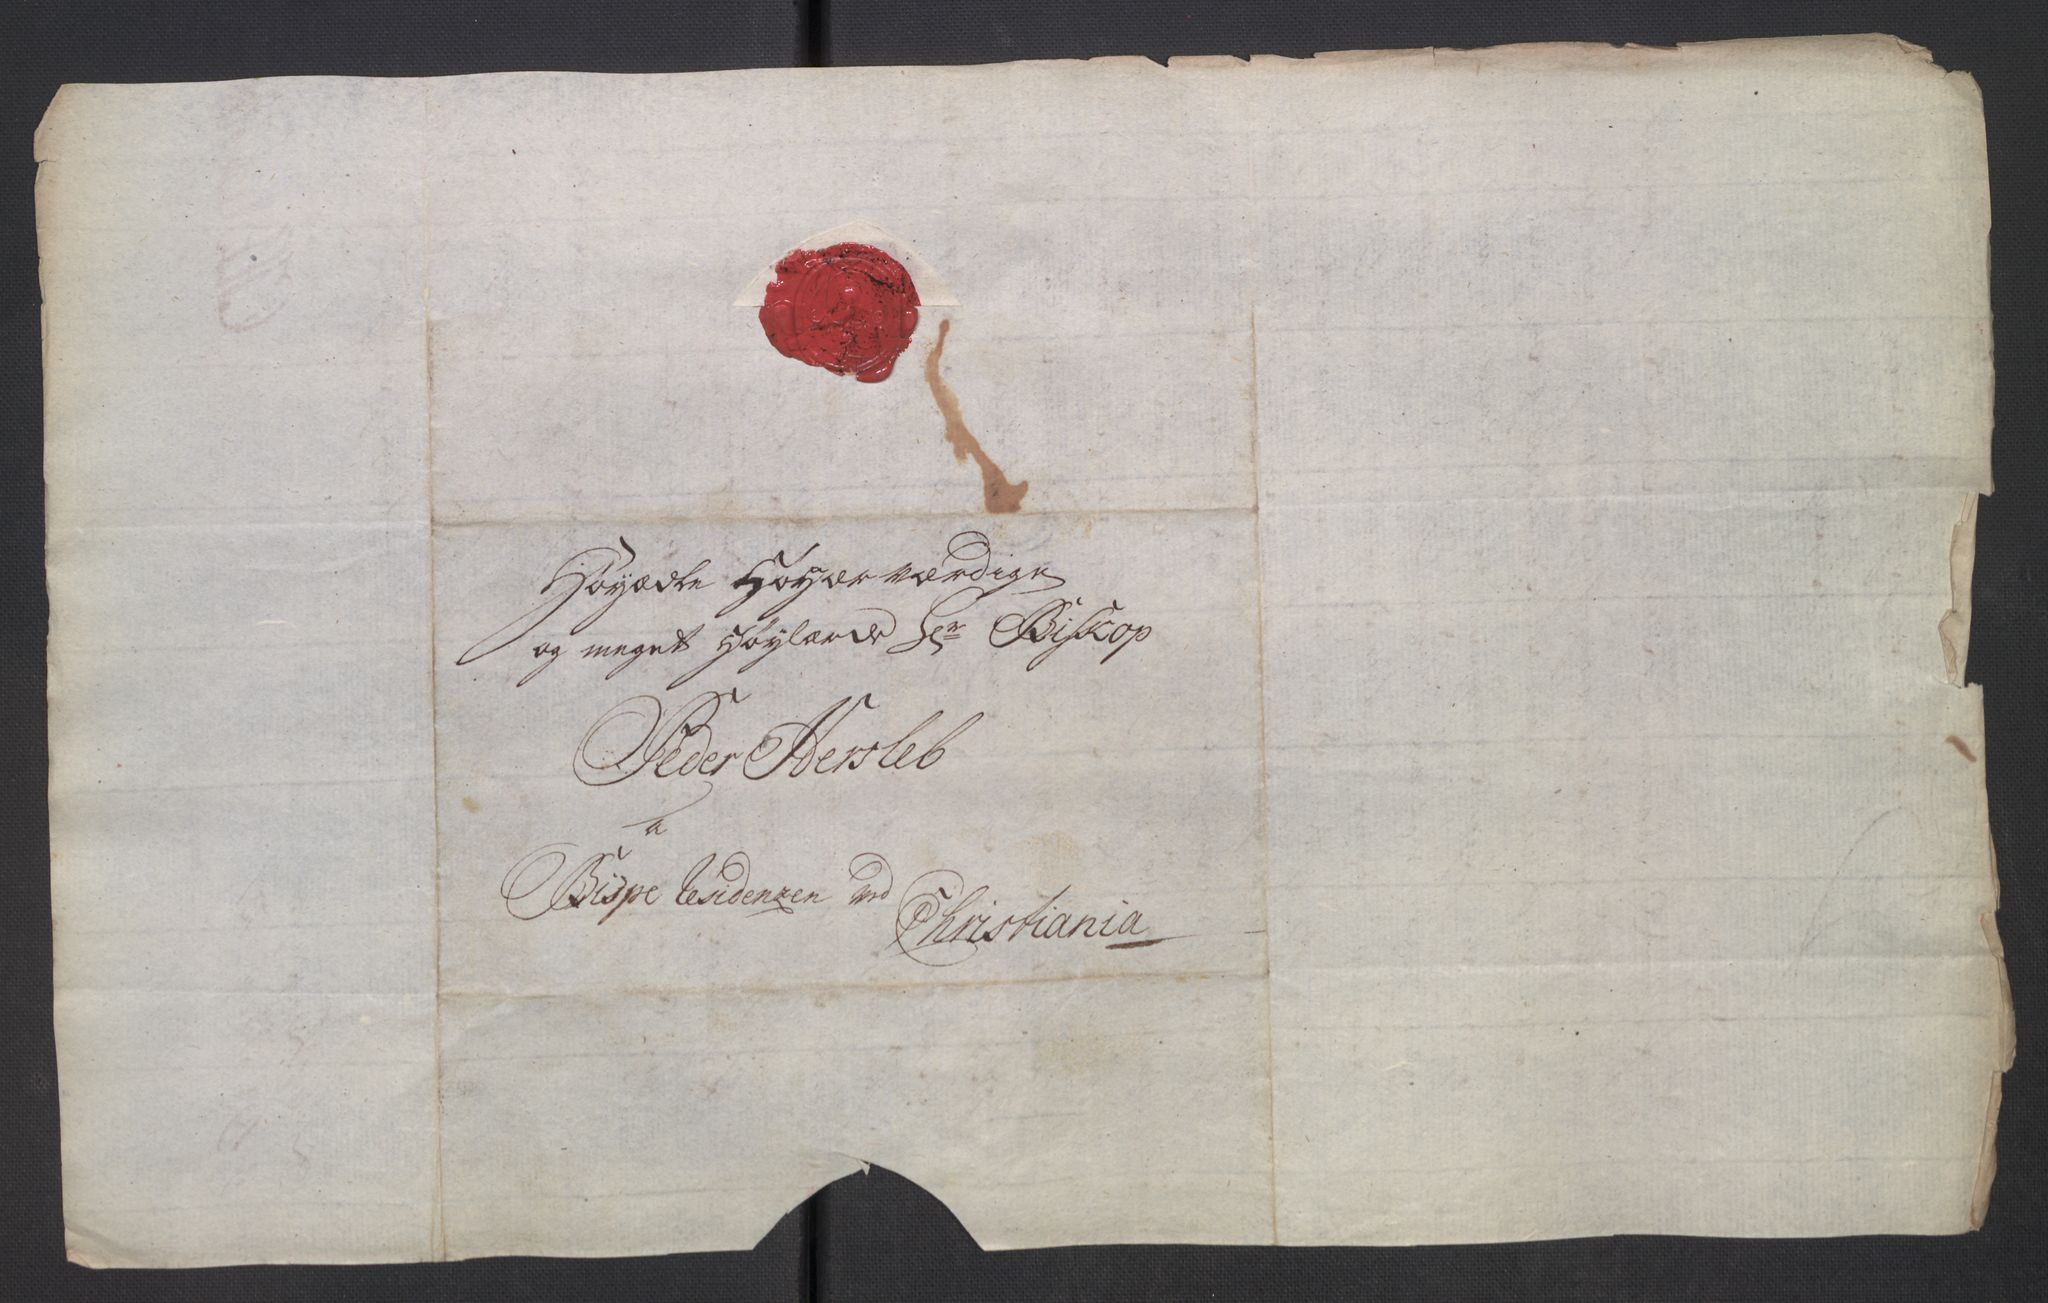 Høyædle Høyærværdige
og meget Høylærde Hr Biskop
Peder Hersleb
a
Bispe Residenzen ved
Christiania